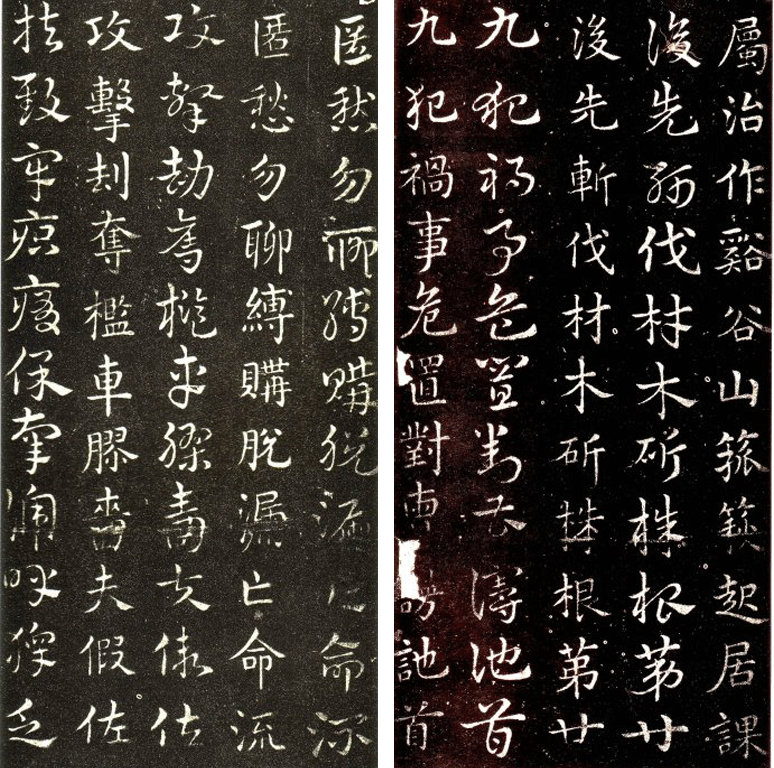 屬治作谿谷山箛篍起居課
後先斬伐材木斫株根苐廿
後先斬伐材木斫株根苐廿
九犯禍事危置對曹謗訑首
九犯禍事危置對曹謗訑首
匿愁勿聊縛購脫漏亡命流
匿愁勿聊縛購脫漏亡命流
攻擊劫奪檻車膠嗇夫假佐
攻擊刦奪檻車膠嗇夫假佐
扶致牢疻痏保辜謕呼獆乏